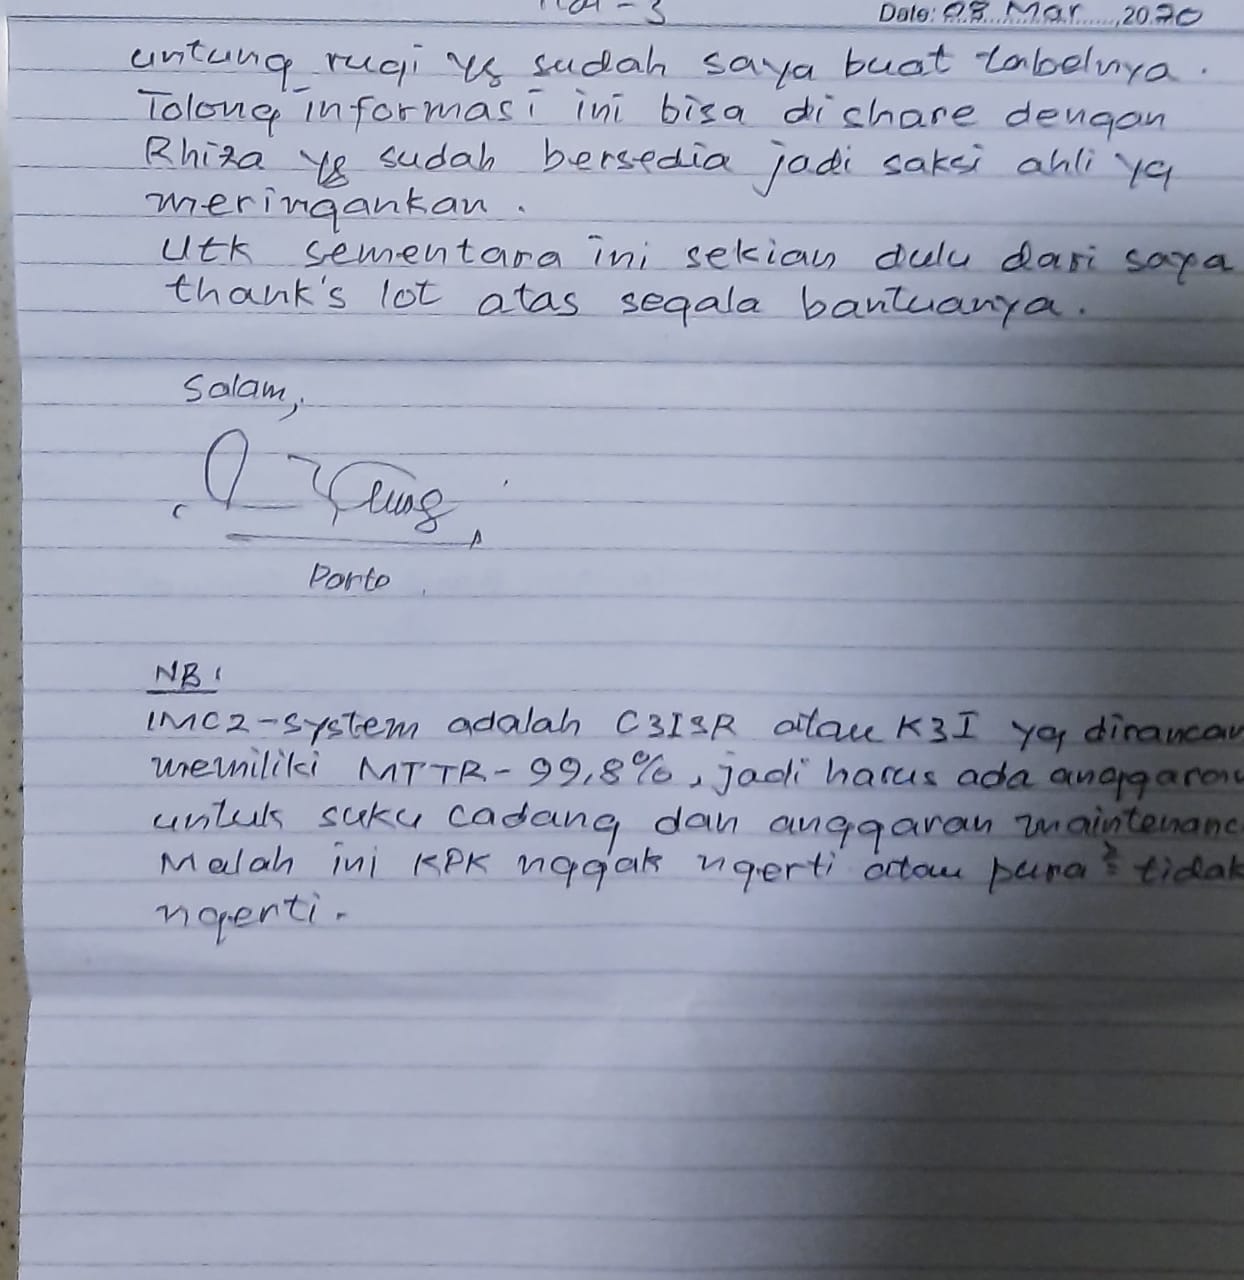 Hal - 3 Date: 08 Mar 2020
untung rugi yg sudah saya buat tabelnya.
Tolong informasi ini bisa dishare dengan
Rhiza yg sudah bersedia jadi saksi ahli yg
meringankan.
Utk sementara ini sekian dulu dari saya
thank's lot atas segala bantuanya.
Salam,
Porto
NB:
IMC2-system adalah C3ISR atau K3I yg dirancan
memiliki MTTR-99,8%, jadi harus ada anggaran
untuk suku cadang dan anggaran maintenanc
Malah ini KPK nggak ngerti atau pura² tidak
ngerti.